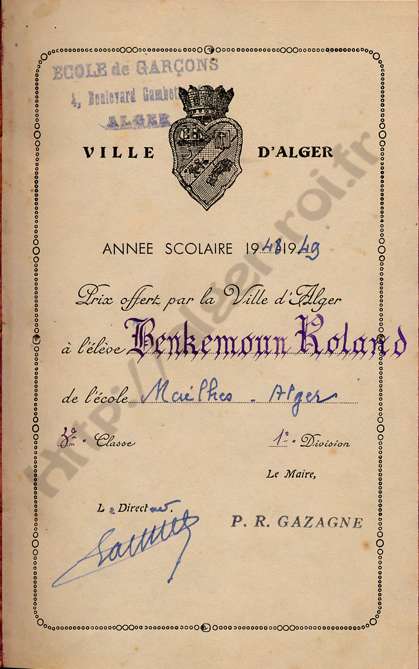 ECOLE de GARÇONS
4, Boulevard Gambetta
ALGER
VILLE D'ALGER
ANNEE SCOLAIRE 1948 1949
Prix offert par la Ville d'Alger
à l'élève Benkemoun Roland
de l'école Alger
3e Classe 1e Division
Le Maire,
Le Directeur.
P. R. GAZAGNE
http://alger-roi.fr